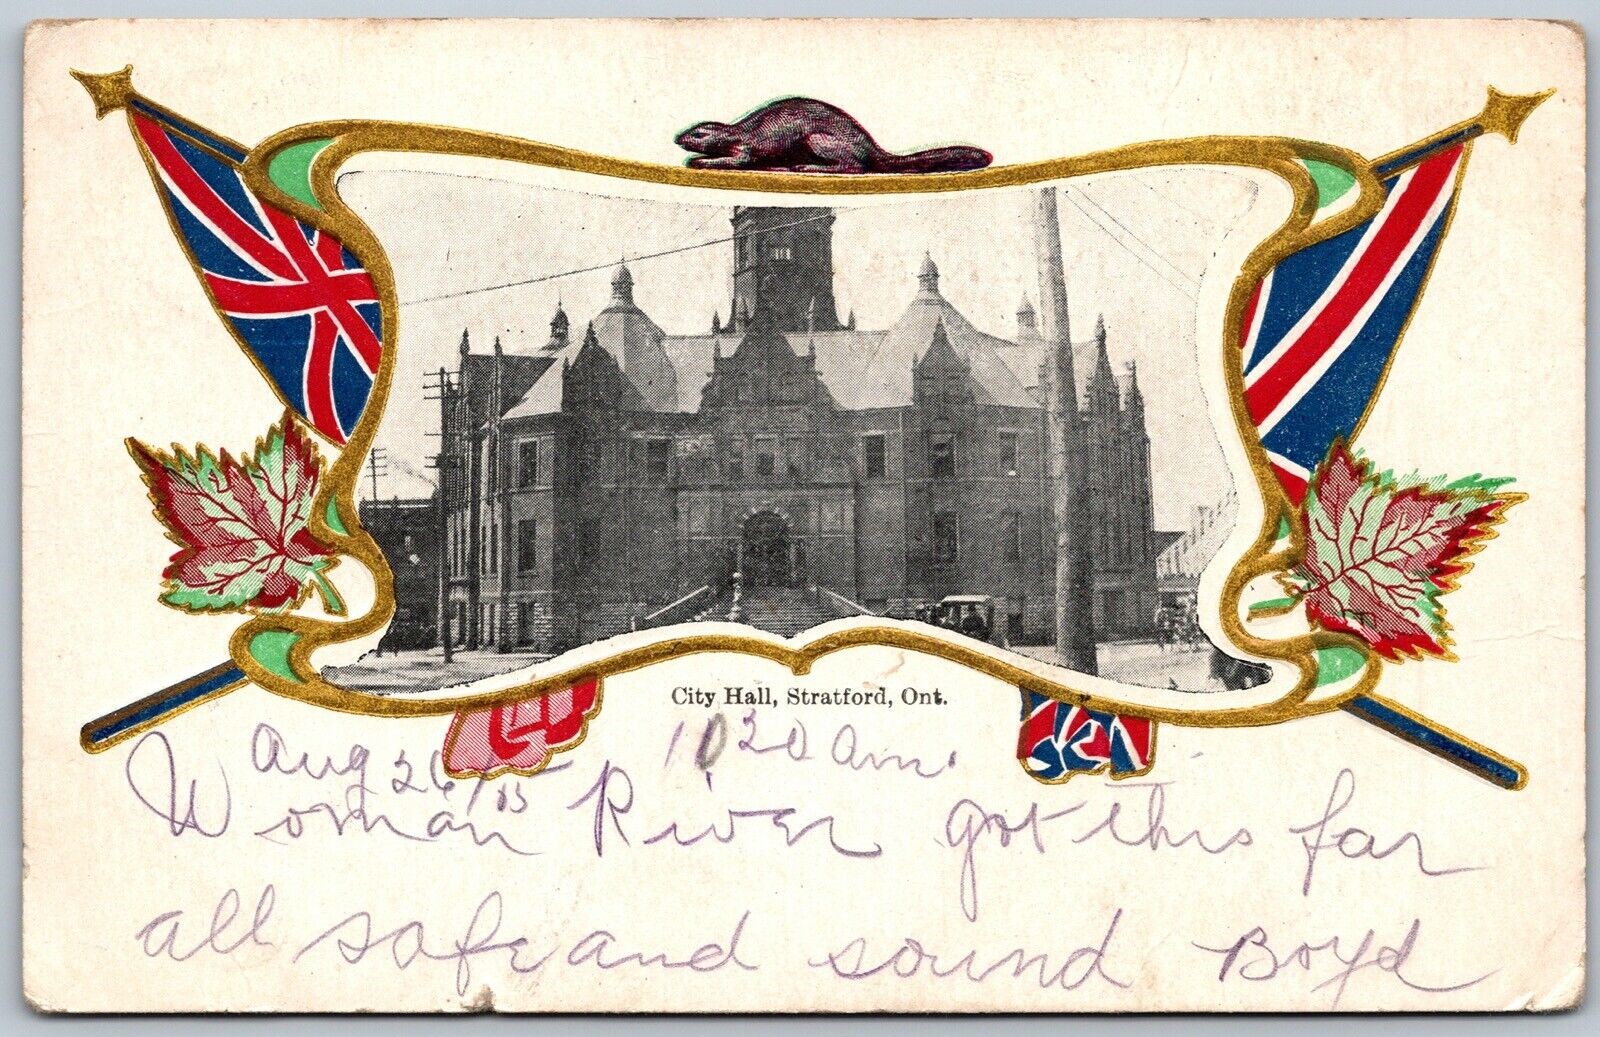 City Hall, Stratford, Ont.
Aug 26/05 10 30 am.
Woman River got this far
all safe and sound Boyd